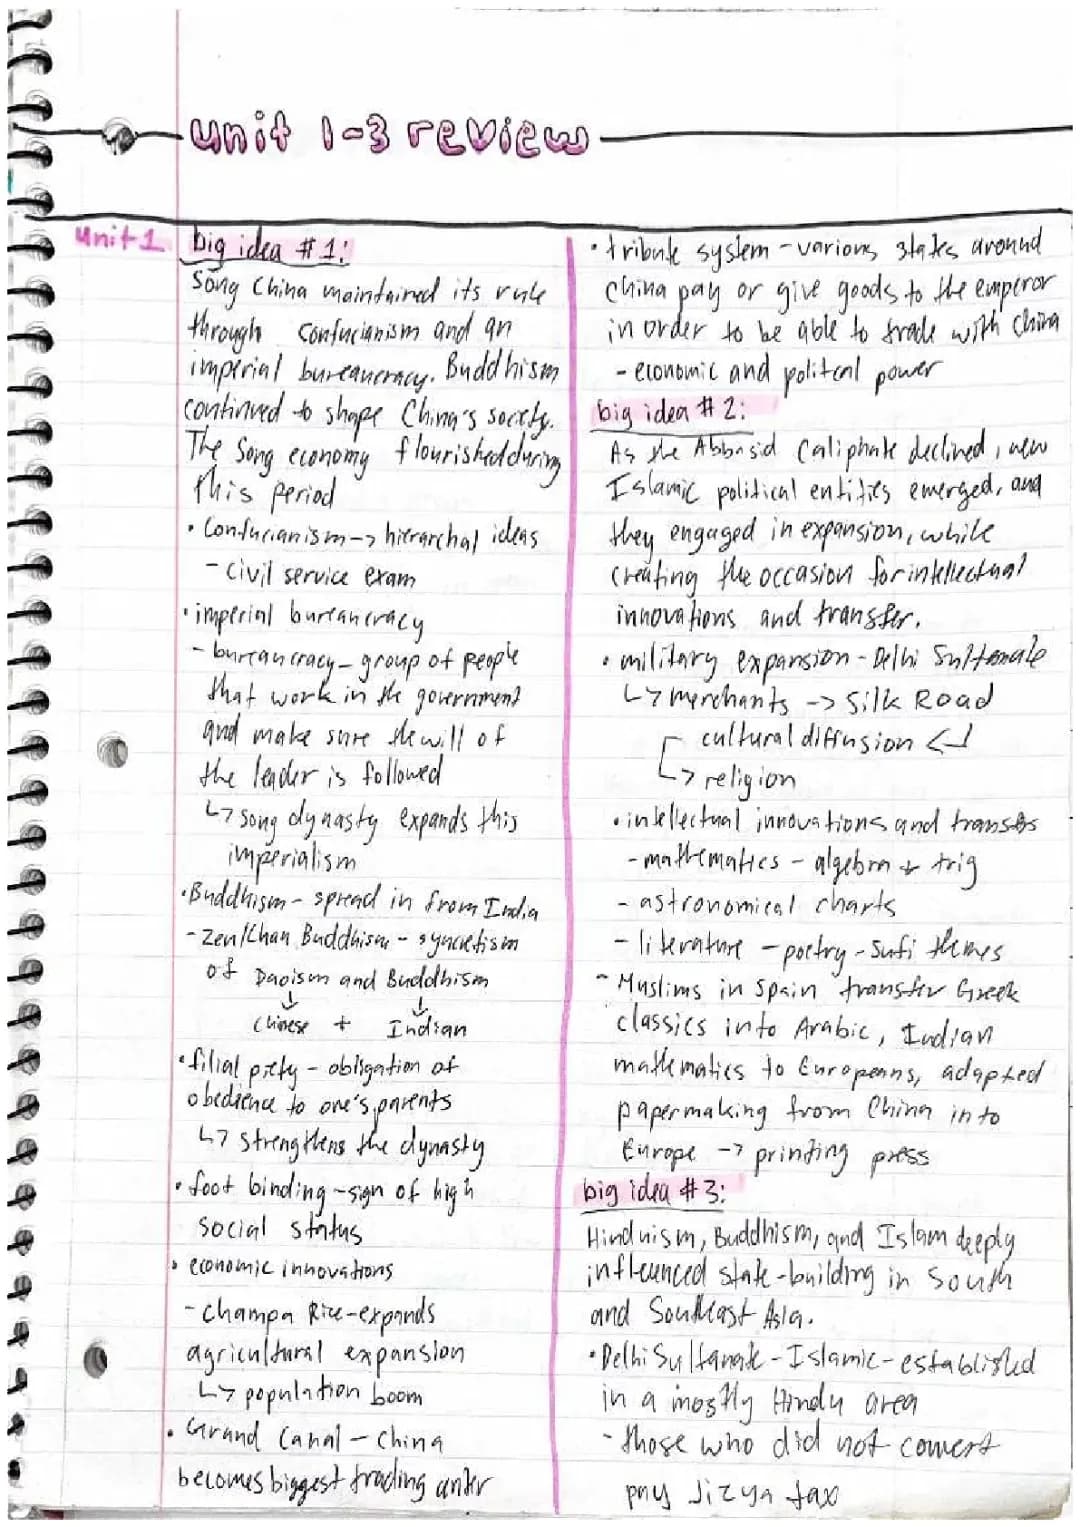 unit 1-3 review
unit 1
big idea #1:
Song China maintained its rule
through Confucianism and an
imperial bureaucracy. Buddhism
continued to shape China's society.
The Song economy flourished during
this period
• Confucianism -> hierarchal ideas
- civil service exam
• imperial bureaucracy
- bureaucracy - group of people
that work in the government
and make sure the will of
the leader is followed
↳ song dynasty expands this
imperialism
• Buddhism - spread in from India
- Zen/Chan Buddhism - syncretism
of Daoism and Buddhism
↓ ↓
Chinese + Indian
• filial piety - obligation of
obedience to one's parents
↳ strengthens the dynasty
• foot binding - sign of high
social status
• economic innovations
- Champa Rice - expands
agricultural expansion
↳ population boom
• Grand Canal - China
becomes biggest trading
• tribute system - various states around
China pay or give goods to the emperor
in order to be able to trade with China
- economic and politcal power
big idea #2:
As the Abbasid Caliphate declined, new
Islamic political entities emerged, and
they engaged in expansion, while
creating the occasion for intellectual
innovations and transfer.
• military expansion - Delhi Sultanate
↳ merchants -> Silk Road
cultural diffusion ↵
↳ religion
• intellectual innovations and transfers
- mathematics - algebra + trig
- astronomical charts
- literature - poetry - Sufi themes
- Muslims in Spain transfer Greek
classics into Arabic, Indian
mathematics to Europeans, adapted
papermaking from China into
Europe -> printing press
big idea #3:
Hinduism, Buddhism, and Islam deeply
influenced state-building in South
and Southeast Asia.
• Delhi Sultanate - Islamic - established
in a mostly Hindu area
- those who did not convert
pay Jizya tax